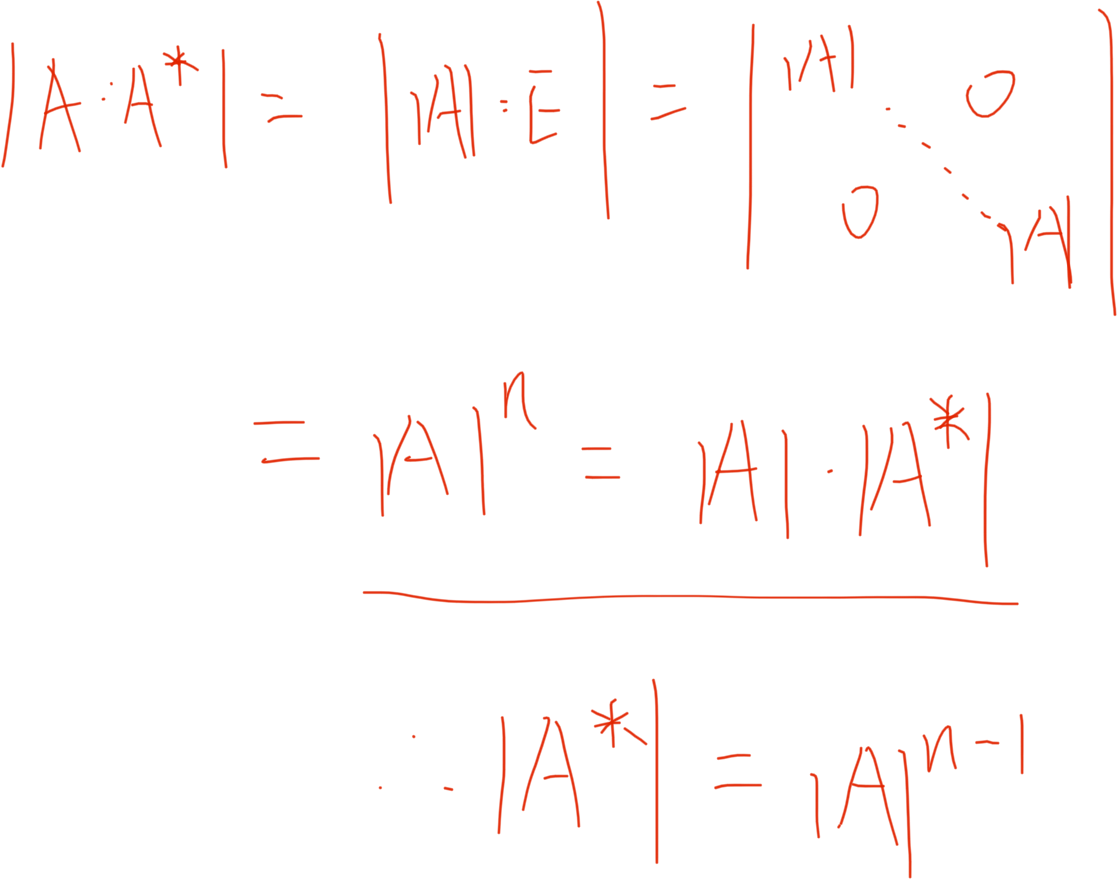 |A·A*| = ||A|·E| = | |A| ⋱ |A| 0 0 |
= |A|ⁿ = |A|·|A*|
∴ |A*| = |A|ⁿ⁻¹